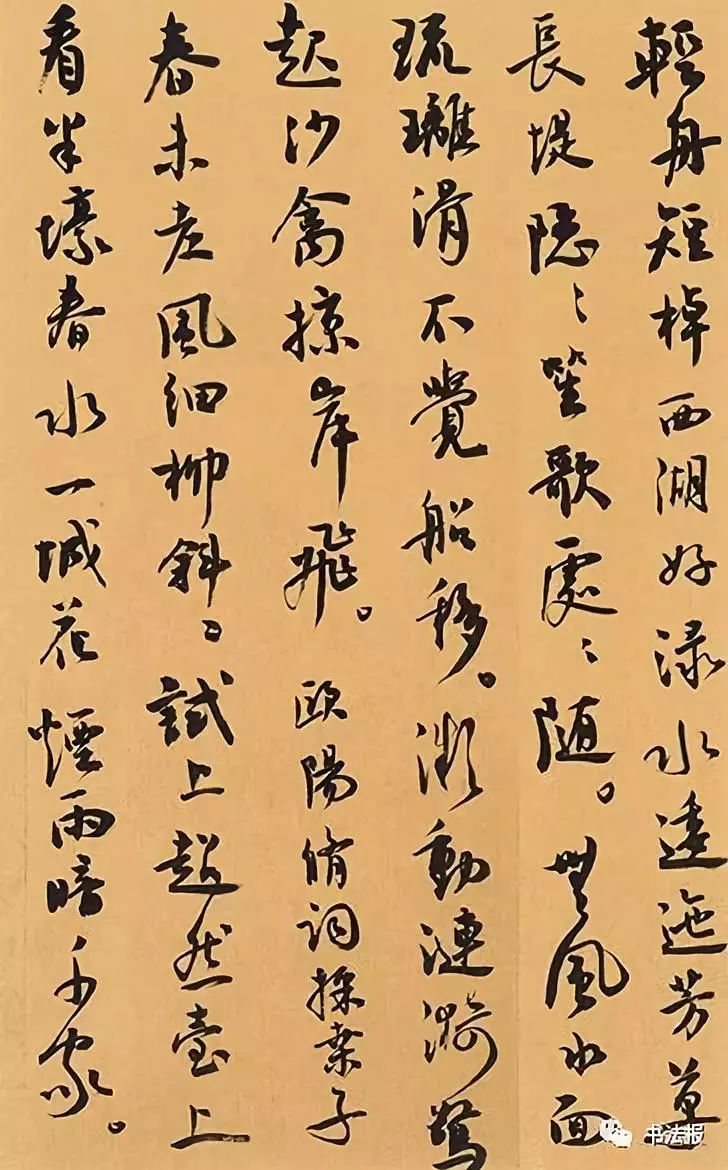 輕舟短棹西湖好淥水逶迤芳草
長堤隱〻笙歌處〻隨。無風水面
琉璃滑不覺船移。微動漣漪驚
起沙禽掠岸飛。歐陽脩詞採桑子
春未老風細柳斜〻試上超然臺上
看半壕春水一城花煙雨暗千家。
书法报